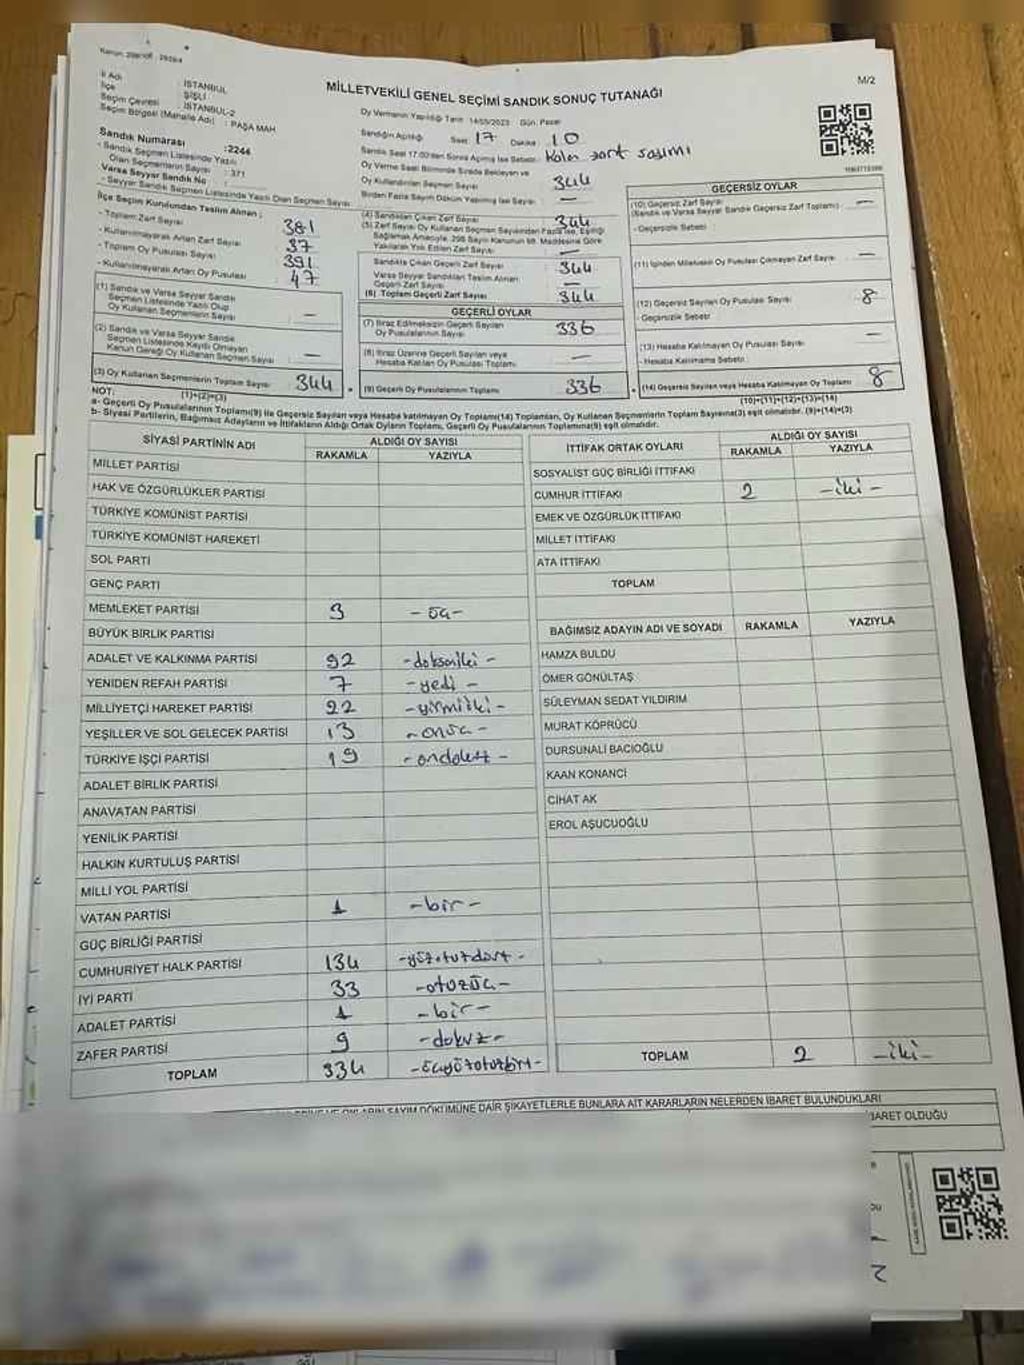 MİLLETVEKİLİ GENEL SEÇİMİ SANDIK SONUÇ TUTANAĞI
M/2
İl Adı : İSTANBUL
İlçe : ŞİŞLİ
Seçim Çevresi : İSTANBUL-2
Seçim Bölgesi (Mahalle Adı) : PAŞA MAH
Sandık Numarası :2244
- Sandık Seçmen Listesinde Yazılı Olan Seçmenlerin Sayısı : 371
Varsa Seyyar Sandık No :
- Seyyar Sandık Seçmen Listesinde Yazılı Olan Seçmen Sayısı
İlçe Seçim Kurulundan Teslim Alınan :
- Toplam Zarf Sayısı : 381
- Kullanılmayarak Artan Zarf Sayısı : 37
- Toplam Oy Pusulası Sayısı : 391
- Kullanılmayarak Artan Oy Pusulası : 47
(1) Sandık ve Varsa Seyyar Sandık Seçmen Listesinde Yazılı Olup Oy Kullanan Seçmenlerin Sayısı —
(2) Sandık ve Varsa Seyyar Sandık Seçmen Listesinde Kaydı Olmayan Kanun Gereği Oy Kullanan Seçmen Sayısı —
(3) Oy Kullanan Seçmenlerin Toplam Sayısı 344
(1)+(2)=(3)
Oy Vermenin Yapıldığı Tarih : 14/05/2023 Gün: Pazar
Sandığın Açıldığı Saat 17 Dakika 10
Sandık Saat 17:00'den Sonra Açılmış İse Sebebi: Kalan zarf sayımı
Oy Verme Saati Bitiminde Sırada Bekleyen ve Oy Kullandırılan Seçmen Sayısı 344
Birden Fazla Sayım Döküm Yapılmış İse Sayısı —
(4) Sandıktan Çıkan Zarf Sayısı 344
(5) Zarf Sayısı Oy Kullanan Seçmen Sayısından Fazla İse, Eşitliği Sağlamak Amacıyla, 298 Sayılı Kanunun 98. Maddesine Göre Yakılarak Yok Edilen Zarf Sayısı —
Sandıkta Çıkan Geçerli Zarf Sayısı 344
Varsa Seyyar Sandıktan Teslim Alınan Geçerli Zarf Sayısı —
(6) Toplam Geçerli Zarf Sayısı 344
GEÇERLİ OYLAR
(7) İtiraz Edilmeksizin Geçerli Sayılan Oy Pusulalarının Sayısı 336
(8) İtiraz Üzerine Geçerli Sayılan veya Hesaba Katılan Oy Pusulası Toplamı —
(9) Geçerli Oy Pusulalarının Toplamı 336
GEÇERSİZ OYLAR
(10) Geçersiz Zarf Sayısı (Sandık ve Varsa Seyyar Sandık Geçersiz Zarf Toplamı) —
- Geçersizlik Sebebi :
(11) İçinden Milletvekili Oy Pusulası Çıkmayan Zarf Sayısı —
(12) Geçersiz Sayılan Oy Pusulası Sayısı 8
- Geçersizlik Sebebi:
(13) Hesaba Katılmayan Oy Pusulası Sayısı —
- Hesaba Katılmama Sebebi :
(14) Geçersiz Sayılan veya Hesaba Katılmayan Oy Pusulası Toplamı 8
(10)+(11)+(12)+(13)=(14)
NOT:
a- Geçerli Oy Pusulalarının Toplamı(9) ile Geçersiz Sayılan veya Hesaba katılmayan Oy Toplamı(14) Toplamları, Oy Kullanan Seçmenlerin Toplam Sayısına(3) eşit olmalıdır. (9)+(14)=(3)
b- Siyasi Partilerin, Bağımsız Adayların ve İttifakların Aldığı Ortak Oyların Toplamı, Geçerli Oy Pusulalarının Toplamına(9) eşit olmalıdır.
SİYASİ PARTİNİN ADI ALDIĞI OY SAYISI
RAKAMLA YAZIYLA
MİLLET PARTİSİ
HAK VE ÖZGÜRLÜKLER PARTİSİ
TÜRKİYE KOMÜNİST PARTİSİ
TÜRKİYE KOMÜNİST HAREKETİ
SOL PARTİ
GENÇ PARTİ
MEMLEKET PARTİSİ 3 -üç-
BÜYÜK BİRLİK PARTİSİ
ADALET VE KALKINMA PARTİSİ 92 -doksaniki-
YENİDEN REFAH PARTİSİ 7 -yedi-
MİLLİYETÇİ HAREKET PARTİSİ 22 -yirmiiki-
YEŞİLLER VE SOL GELECEK PARTİSİ 13 -onüç-
TÜRKİYE İŞÇİ PARTİSİ 19 -ondokuz-
ADALET BİRLİK PARTİSİ
ANAVATAN PARTİSİ
YENİLİK PARTİSİ
HALKIN KURTULUŞ PARTİSİ
MİLLİ YOL PARTİSİ
VATAN PARTİSİ 1 -bir-
GÜÇ BİRLİĞİ PARTİSİ
CUMHURİYET HALK PARTİSİ 134 -yüzotuzdört-
İYİ PARTİ 33 -otuzüç-
ADALET PARTİSİ 1 -bir-
ZAFER PARTİSİ 9 -dokuz-
TOPLAM 334
İTTİFAK ORTAK OYLARI ALDIĞI OY SAYISI
RAKAMLA YAZIYLA
SOSYALİST GÜÇ BİRLİĞİ İTTİFAKI
CUMHUR İTTİFAKI 2 -iki-
EMEK VE ÖZGÜRLÜK İTTİFAKI
MİLLET İTTİFAKI
ATA İTTİFAKI
TOPLAM
BAĞIMSIZ ADAYIN ADI VE SOYADI RAKAMLA YAZIYLA
HAMZA BULDU
ÖMER GÖNÜLTAŞ
SÜLEYMAN SEDAT YILDIRIM
MURAT KÖPRÜCÜ
DURSUNALİ BACIOĞLU
KAAN KONANCİ
CİHAT AK
EROL AŞUCUOĞLU
TOPLAM 2 -iki-
SAYIM DÖKÜMÜNE DAİR ŞİKAYETLERLE BUNLARA AİT KARARLARIN NELERDEN İBARET BULUNDUKLARI
İBARET OLDUĞU